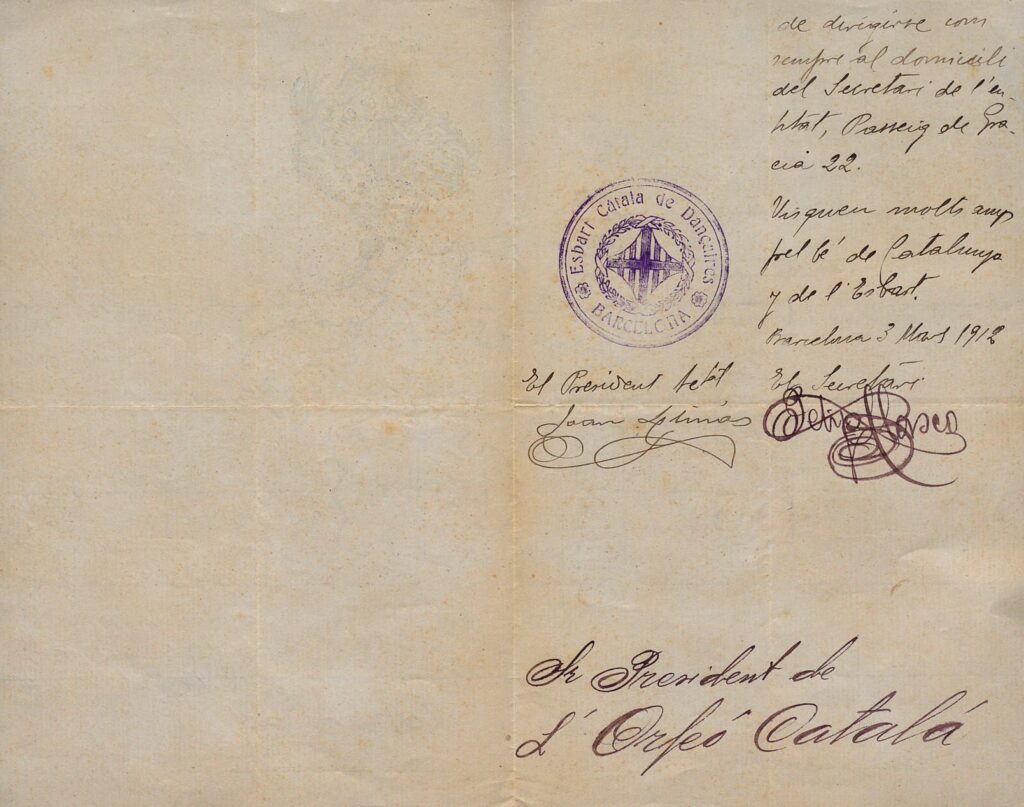 de dirigirse com
sempre al domicili
del Secretari de l'en
titat, Passeig de Grà-
cia 22.
Visquen molts anys
pel bé de Catalunya
y de l'Esbart.
Barcelona 3 Mars 1912
El Secretári
Esbart Català de Dançaires
BARCELONA
El President
Joan
Sr President de
L' Orfeó Catalá